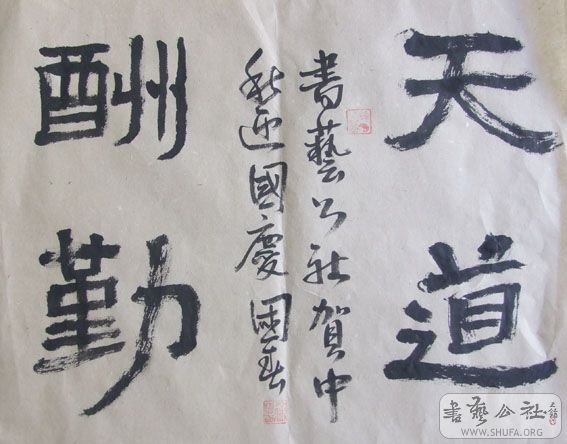 天道
酬勤
書藝公社賀中
秋迎國慶
書藝公社
WWW.SHUFA.ORG